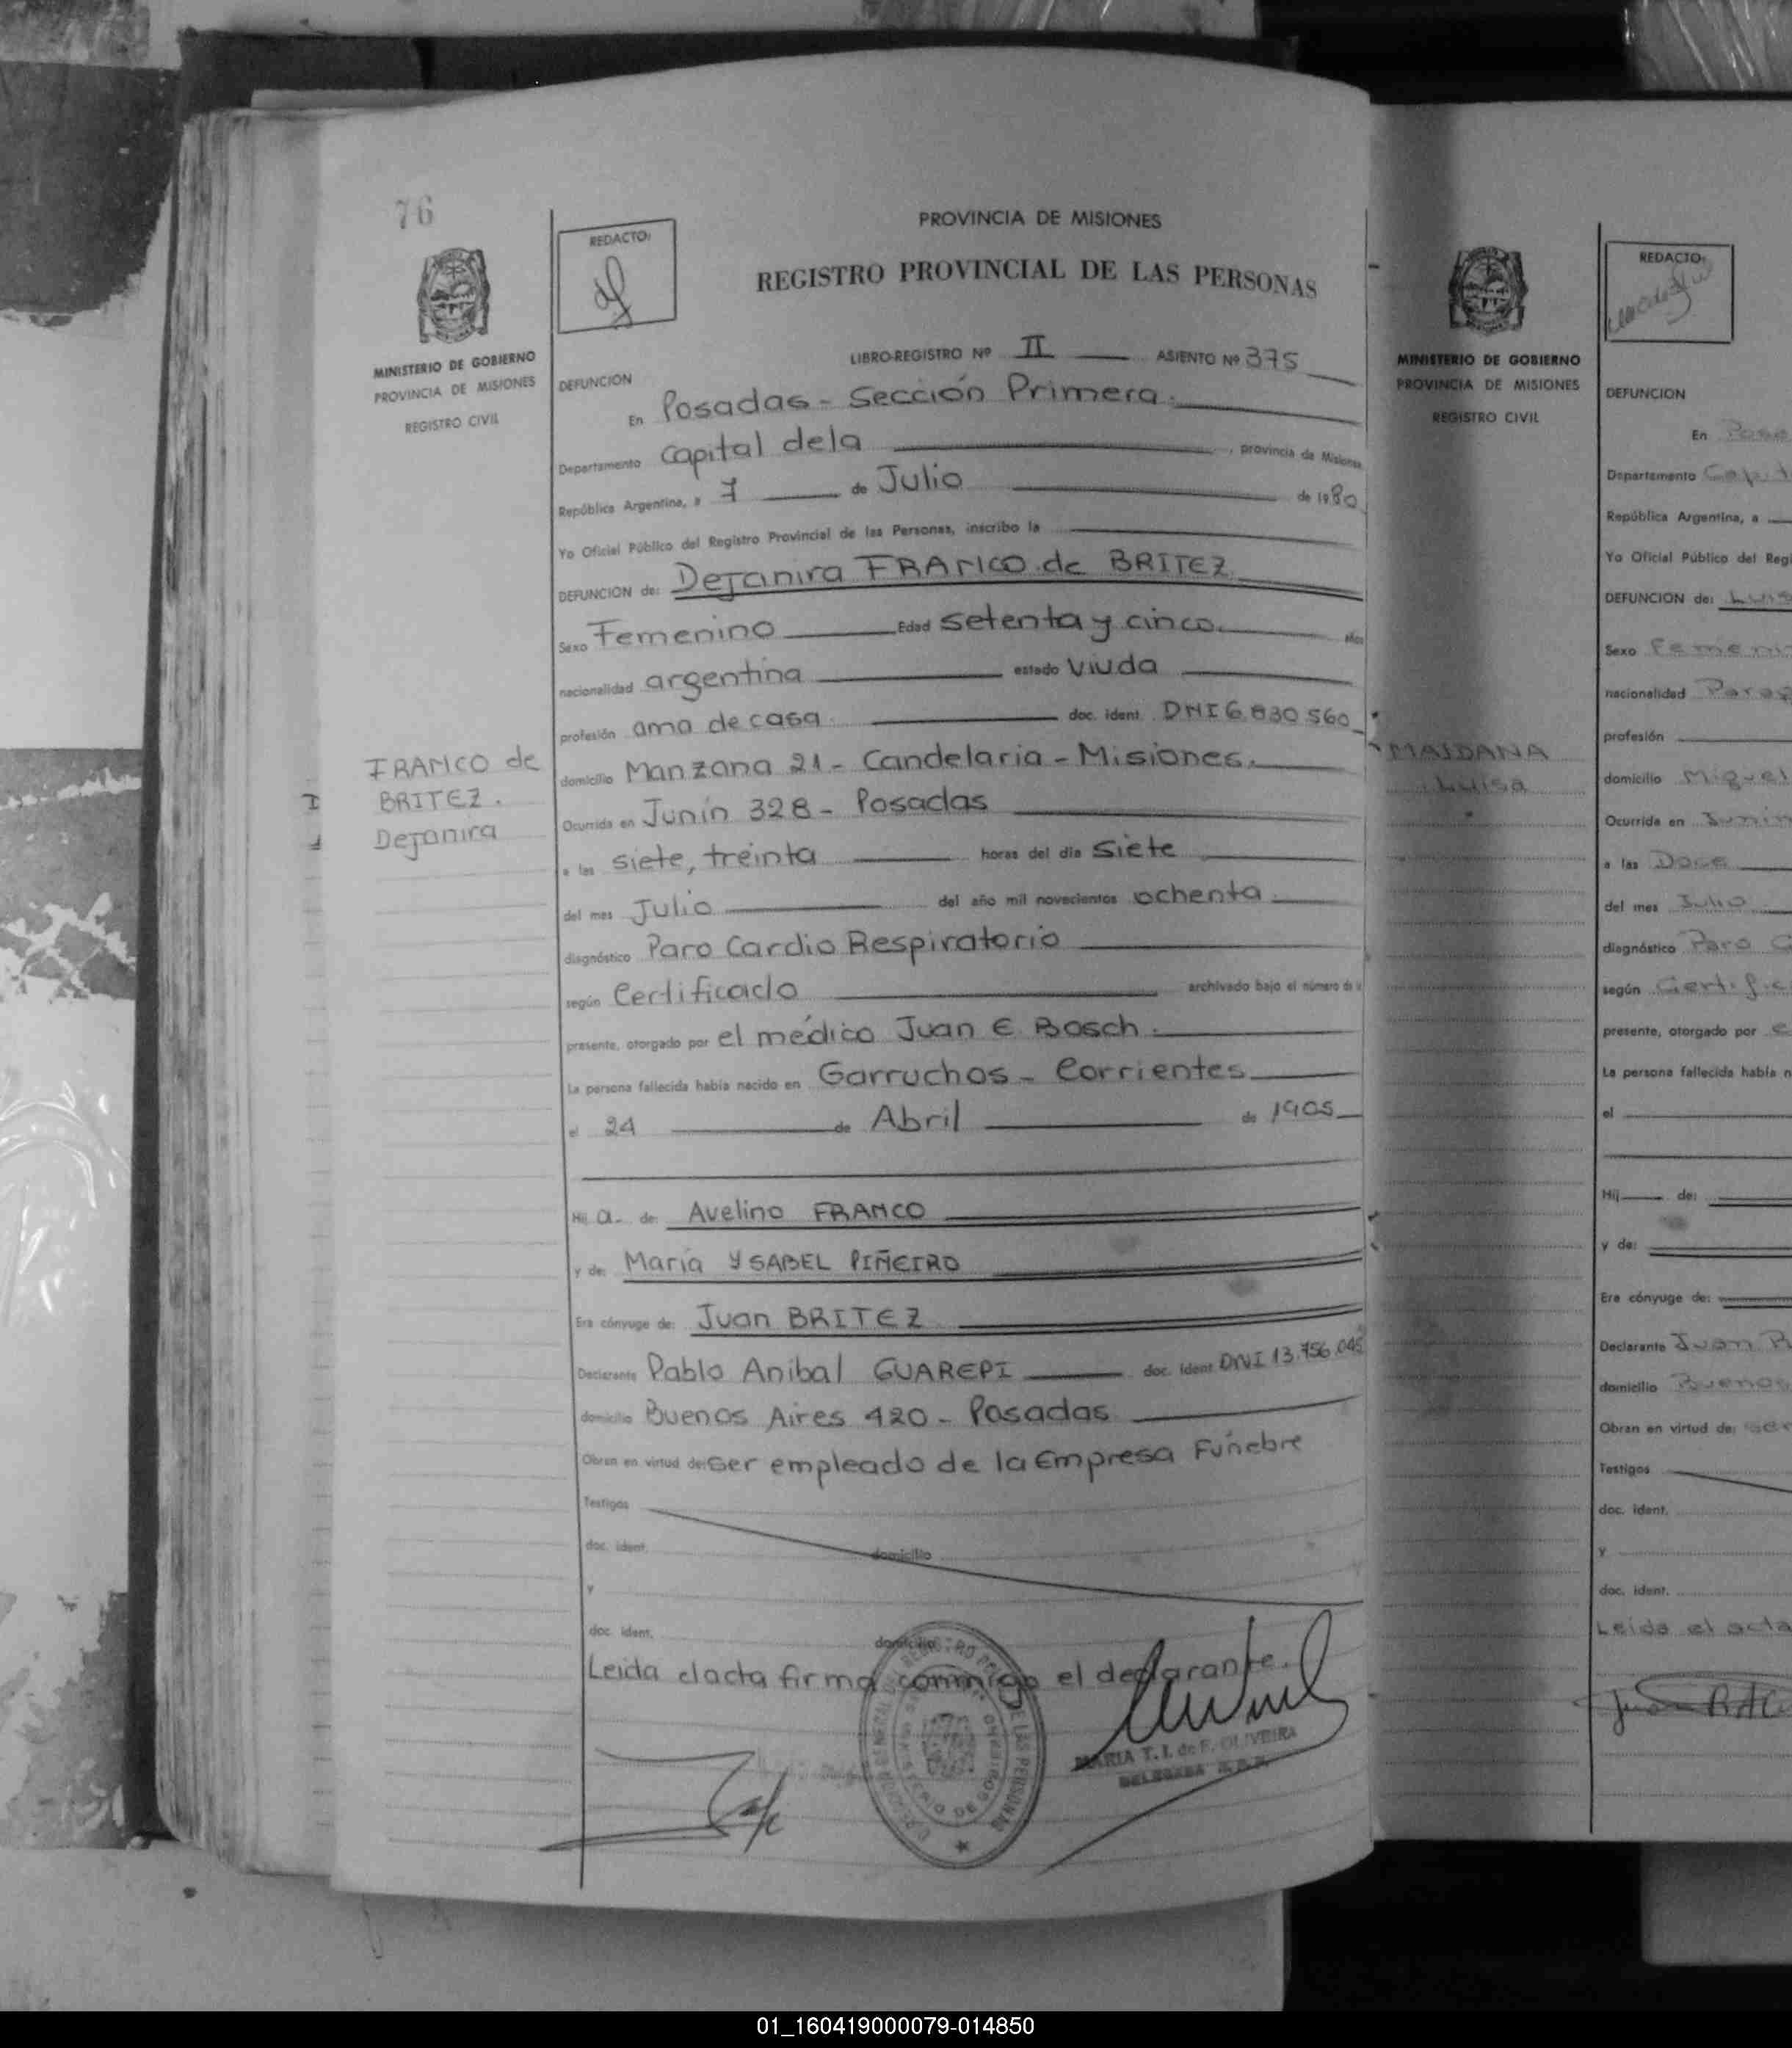 76
MINISTERIO DE GOBIERNO
PROVINCIA DE MISIONES
REGISTRO CIVIL
FRANCO de
BRITEZ.
Dejanira
REDACTO:
PROVINCIA DE MISIONES
REGISTRO PROVINCIAL DE LAS PERSONAS
LIBRO-REGISTRO Nº II ASIENTO Nº 375
DEFUNCION
En Posadas - Sección Primera.
Departamento Capital dela , provincia de Misiones
República Argentina, a 7 de Julio de 1980
Yo Oficial Público del Registro Provincial de las Personas, inscribo la
DEFUNCION de: Dejanira FRANCO de BRITEZ
Sexo Femenino Edad setenta y cinco. años
nacionalidad argentina estado viuda
profesión ama de casa. doc. ident. DNI 6.830.560
domicilio Manzana 21 - Candelaria - Misiones.
Ocurrida en Junín 328 - Posadas
a las siete, treinta horas del día siete
del mes Julio del año mil novecientos ochenta.
diagnóstico Paro Cardio Respiratorio
según Certificado archivado bajo el número de
presente, otorgado por el médico Juan E Bosch.
La persona fallecida había nacido en Garruchos - Corrientes
el 24 de Abril de 1905
Hij a. de: Avelino FRANCO
y de: María YSABEL PIÑEIRO
Era cónyuge de: Juan BRITEZ
Declarante Pablo Anibal GUAREPI doc. ident DNI 13.756.045
domicilio Buenos Aires 420 - Posadas
Obran en virtud de: ser empleado de la Empresa Fúnebre
Testigos
doc. ident. domicilio
y
doc. ident. domicilio
Leida el acta firma conmigo el declarante.
MARIA T. I. de F. OLIVEIRA
DELEGADA
MINISTERIO DE GOBIERNO
PROVINCIA DE MISIONES
REGISTRO CIVIL
MAIDANA
Luisa
REDACTO:
DEFUNCION
En Posa
Departamento Capit
República Argentina, a
Yo Oficial Público del Regi
DEFUNCION de: Luis
Sexo Femeni
nacionalidad Parag
profesión
domicilio Miguel
Ocurrida en Junin
a las Doce
del mes Julio
diagnóstico Paro C
según Certific
presente, otorgado por e
La persona fallecida había n
el
Hij de:
y de:
Era cónyuge de:
Declarante Juan R
domicilio Buenos
Obran en virtud de: ser
Testigos
doc. ident.
y
doc. ident.
Leida el acta
01_160419000079-014850